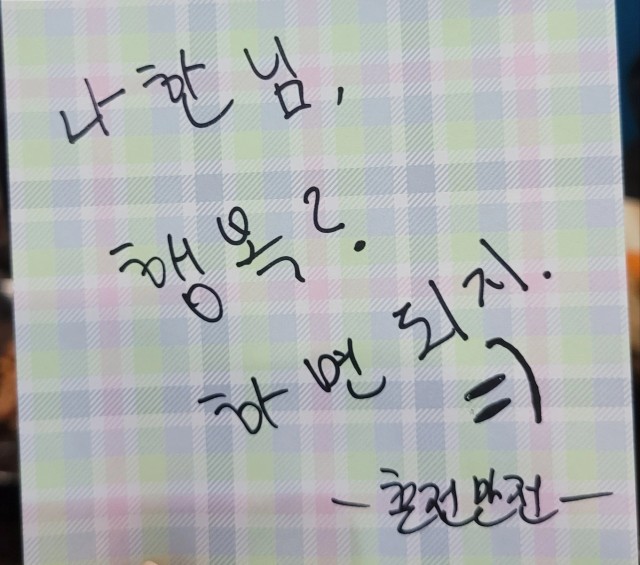 나한님,
행복?
하면 되지.
=)
- 혼전만전 -